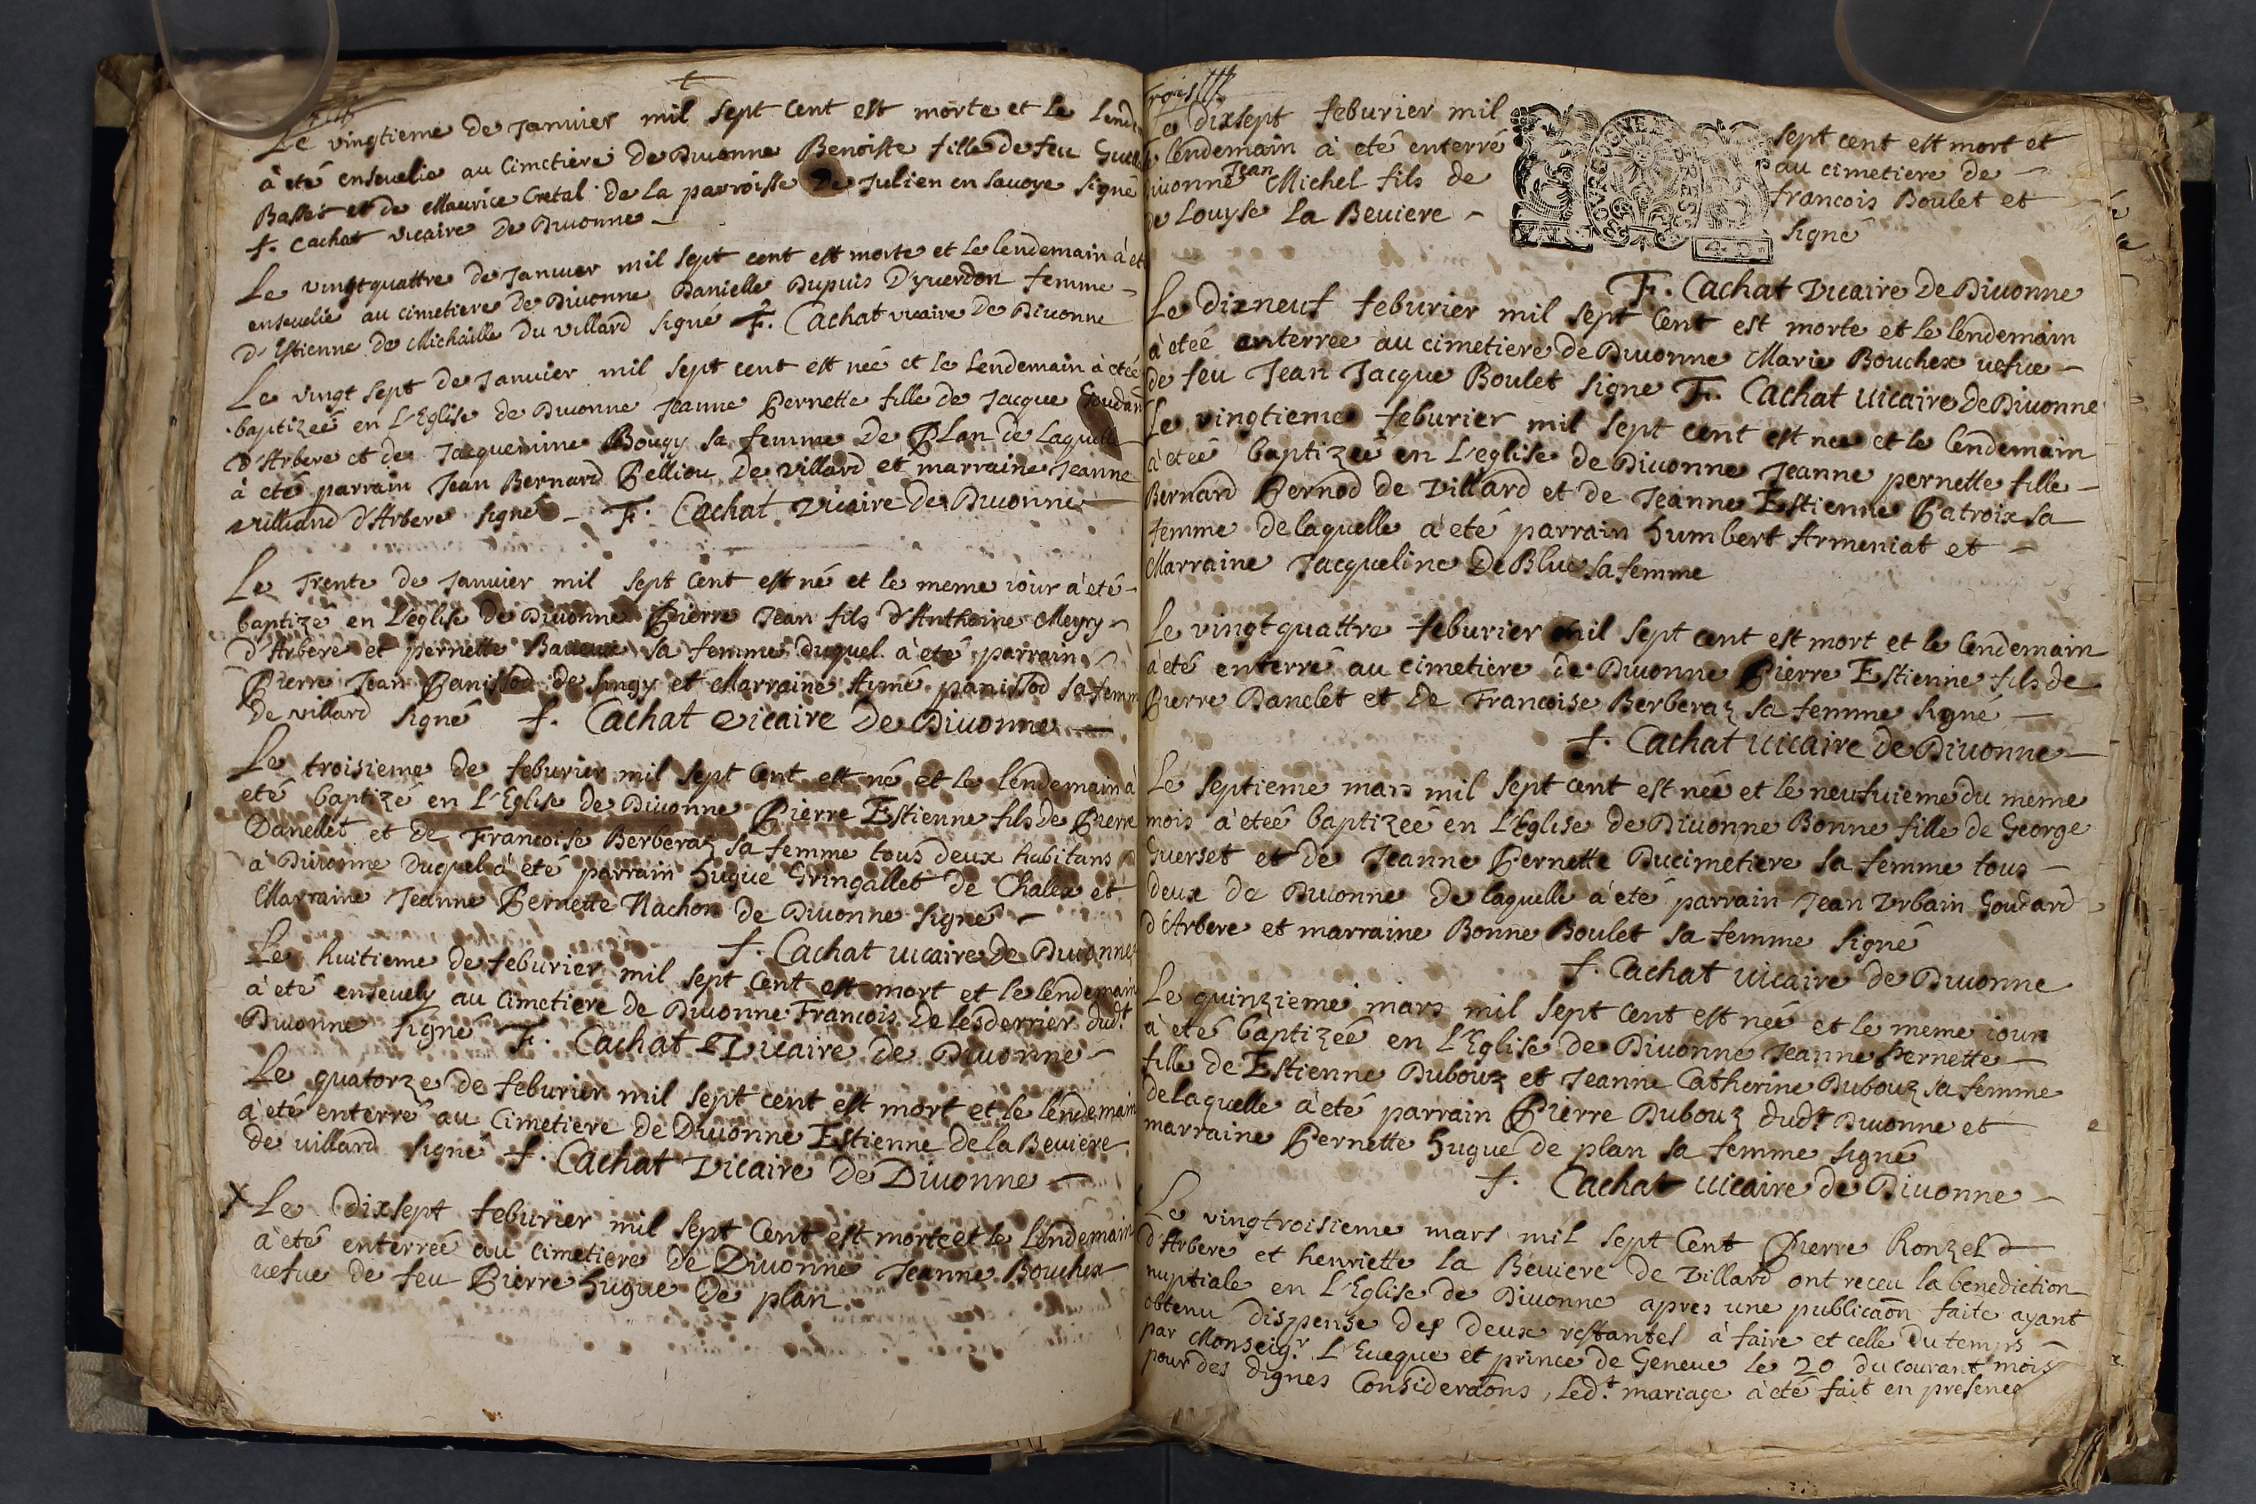 Le vingtieme de Januier mil sept cent est morte et le
à eté enseuelie au Cimetiere de Diuonne Benoiste fille de feu
Basset et de Maurice Cretal de la parroisse de Julien en Sauoye signé
f. Cachat vicaire de Diuonne
Le vingtquattre de Januier mil sept cent est morte et le lendemain à eté
enseuelie au cimetiere de Diuonne Danielle Dupuis D'yuerdon femme
d'Estienne de Michaille du villard signé F. Cachat vicaire de Diuonne
Le vingt sept de Januier mil sept cent est neé et le Lendemain à eteé
baptizeé en L'Eglise de Diuonne Jeanne Pernette fille de Jacque Goudard
d'Arbere et de Jacquemine Bougy sa femme de Plan de Laquelle
à eté parrain Jean Bernard Pelliou de villard et marraine Jeanne
Vulliand d'Arbere signé F. Cachat Vicaire de Diuonne
Le Trente de Januier mil sept cent est né et le meme iour à eté
baptizé en L'eglise de Diuonne Pierre Jean fils d'Anthoine Meyry
d'Arbere et pernette sa femme duquel à eté parrain
Pierre Jean Panissod de Singy et Marraine Aymé panissod sa femme
de villard signé f. Cachat vicaire de Diuonne
Le troisieme de feburier mil sept cent est né et le lendemain à
eté baptizé en L'Eglise de Diuonne Pierre Estienne fils de Pierre
Danellet et de Francoise Berberaz sa femme tous deux habitans
à Diuonne Duquel à eté parrain hugue Gringallet de Chalex et
Marraine Jeanne Pernette Nachon de Diuonne signé
f. Cachat vicaire de Diuonne
Le huitieme de feburier mil sept cent est mort et le lendemain
à eté enseuely au Cimetiere de Diuonne Francois de Lesderrier dudt
Diuonne signé F. Cachat Vicaire de Diuonne
Le quatorze de feburier mil sept cent est mort et le lendemain
à eté enterré au Cimetiere de Diuonne Estienne de la Beuiere
de villard signé f. Cachat Vicaire de Diuonne
X Le Dixsept feburier mil sept Cent est morte et le Lendemain
à eté enterreé au Cimetiere de Diuonne Jeanne Bouchex
uefue de feu Pierre hugue de plan
trois
Le dixsept feburier mil sept cent est mort et
le lendemain à eté enterré au cimetiere de
Diuonne Jean Michel fils de francois Boulet et
de Louyse La Beuiere signé
F. Cachat Vicaire de Diuonne
Le Dixneuf feburier mil sept Cent est morte et le lendemain
à eteé enterree au cimetiere de Diuonne Marie Bouchex uefue
de feu Jean Jacque Boulet signe F. Cachat Vicaire de Diuonne
Le vingtieme feburier mil sept cent est nee et le lendemain
à eteé baptizeé en L'eglise de Diuonne Jeanne pernette fille
Bernard Pernod de Villard et de Jeanne Estienne Patroix sa
femme de laquelle à eté parrain humbert Armeniat et
Marraine Jacqueline De Blue sa femme
Le vingtquattre feburier mil sept cent est mort et le lendemain
à eté enterré au cimetiere de Diuonne Pierre Estienne fils de
Pierre Danclet et de Francoise Berberaz sa femme signé
f. Cachat vicaire de Diuonne
Le septieme mars mil sept cent est neé et le neufuieme du meme
mois à eteé baptizeé en L'Eglise de Diuonne Bonne fille de George
Guerset et de Jeanne Pernette Ducimetiere sa femme tous
deux de Diuonne de laquelle à eté parrain Jean Vrbain Goudard
d'Arbere et marraine Bonne Boulet sa femme signé
f. Cachat vicaire de Diuonne
Le quinzieme mars mil sept cent est neé et le meme iour
à eté baptizeé en L'Eglise de Diuonne Jeanne Pernette
fille de Estienne Dubouz et Jeanne Catherine Dubouz sa femme
de laquelle à eté parrain Pierre Dubouz dudt Diuonne et
marraine Pernette hugue de plan sa femme signé
f. Cachat vicaire de Diuonne
Le vingtroisieme mars mil sept Cent Pierre Ronzel
d'Arbere et henriette la Beuiere de Villard ont receu la benediction
nuptiale en L'Eglise de Diuonne apres une publicaõn faite ayant
obtenu dispense des deux restantes à faire et celle du temps
par Monseigr L'Eueque et prince de Geneue le 20 du courant mois
pour des dignes Consideraõns, Ledt mariage à eté fait en presence